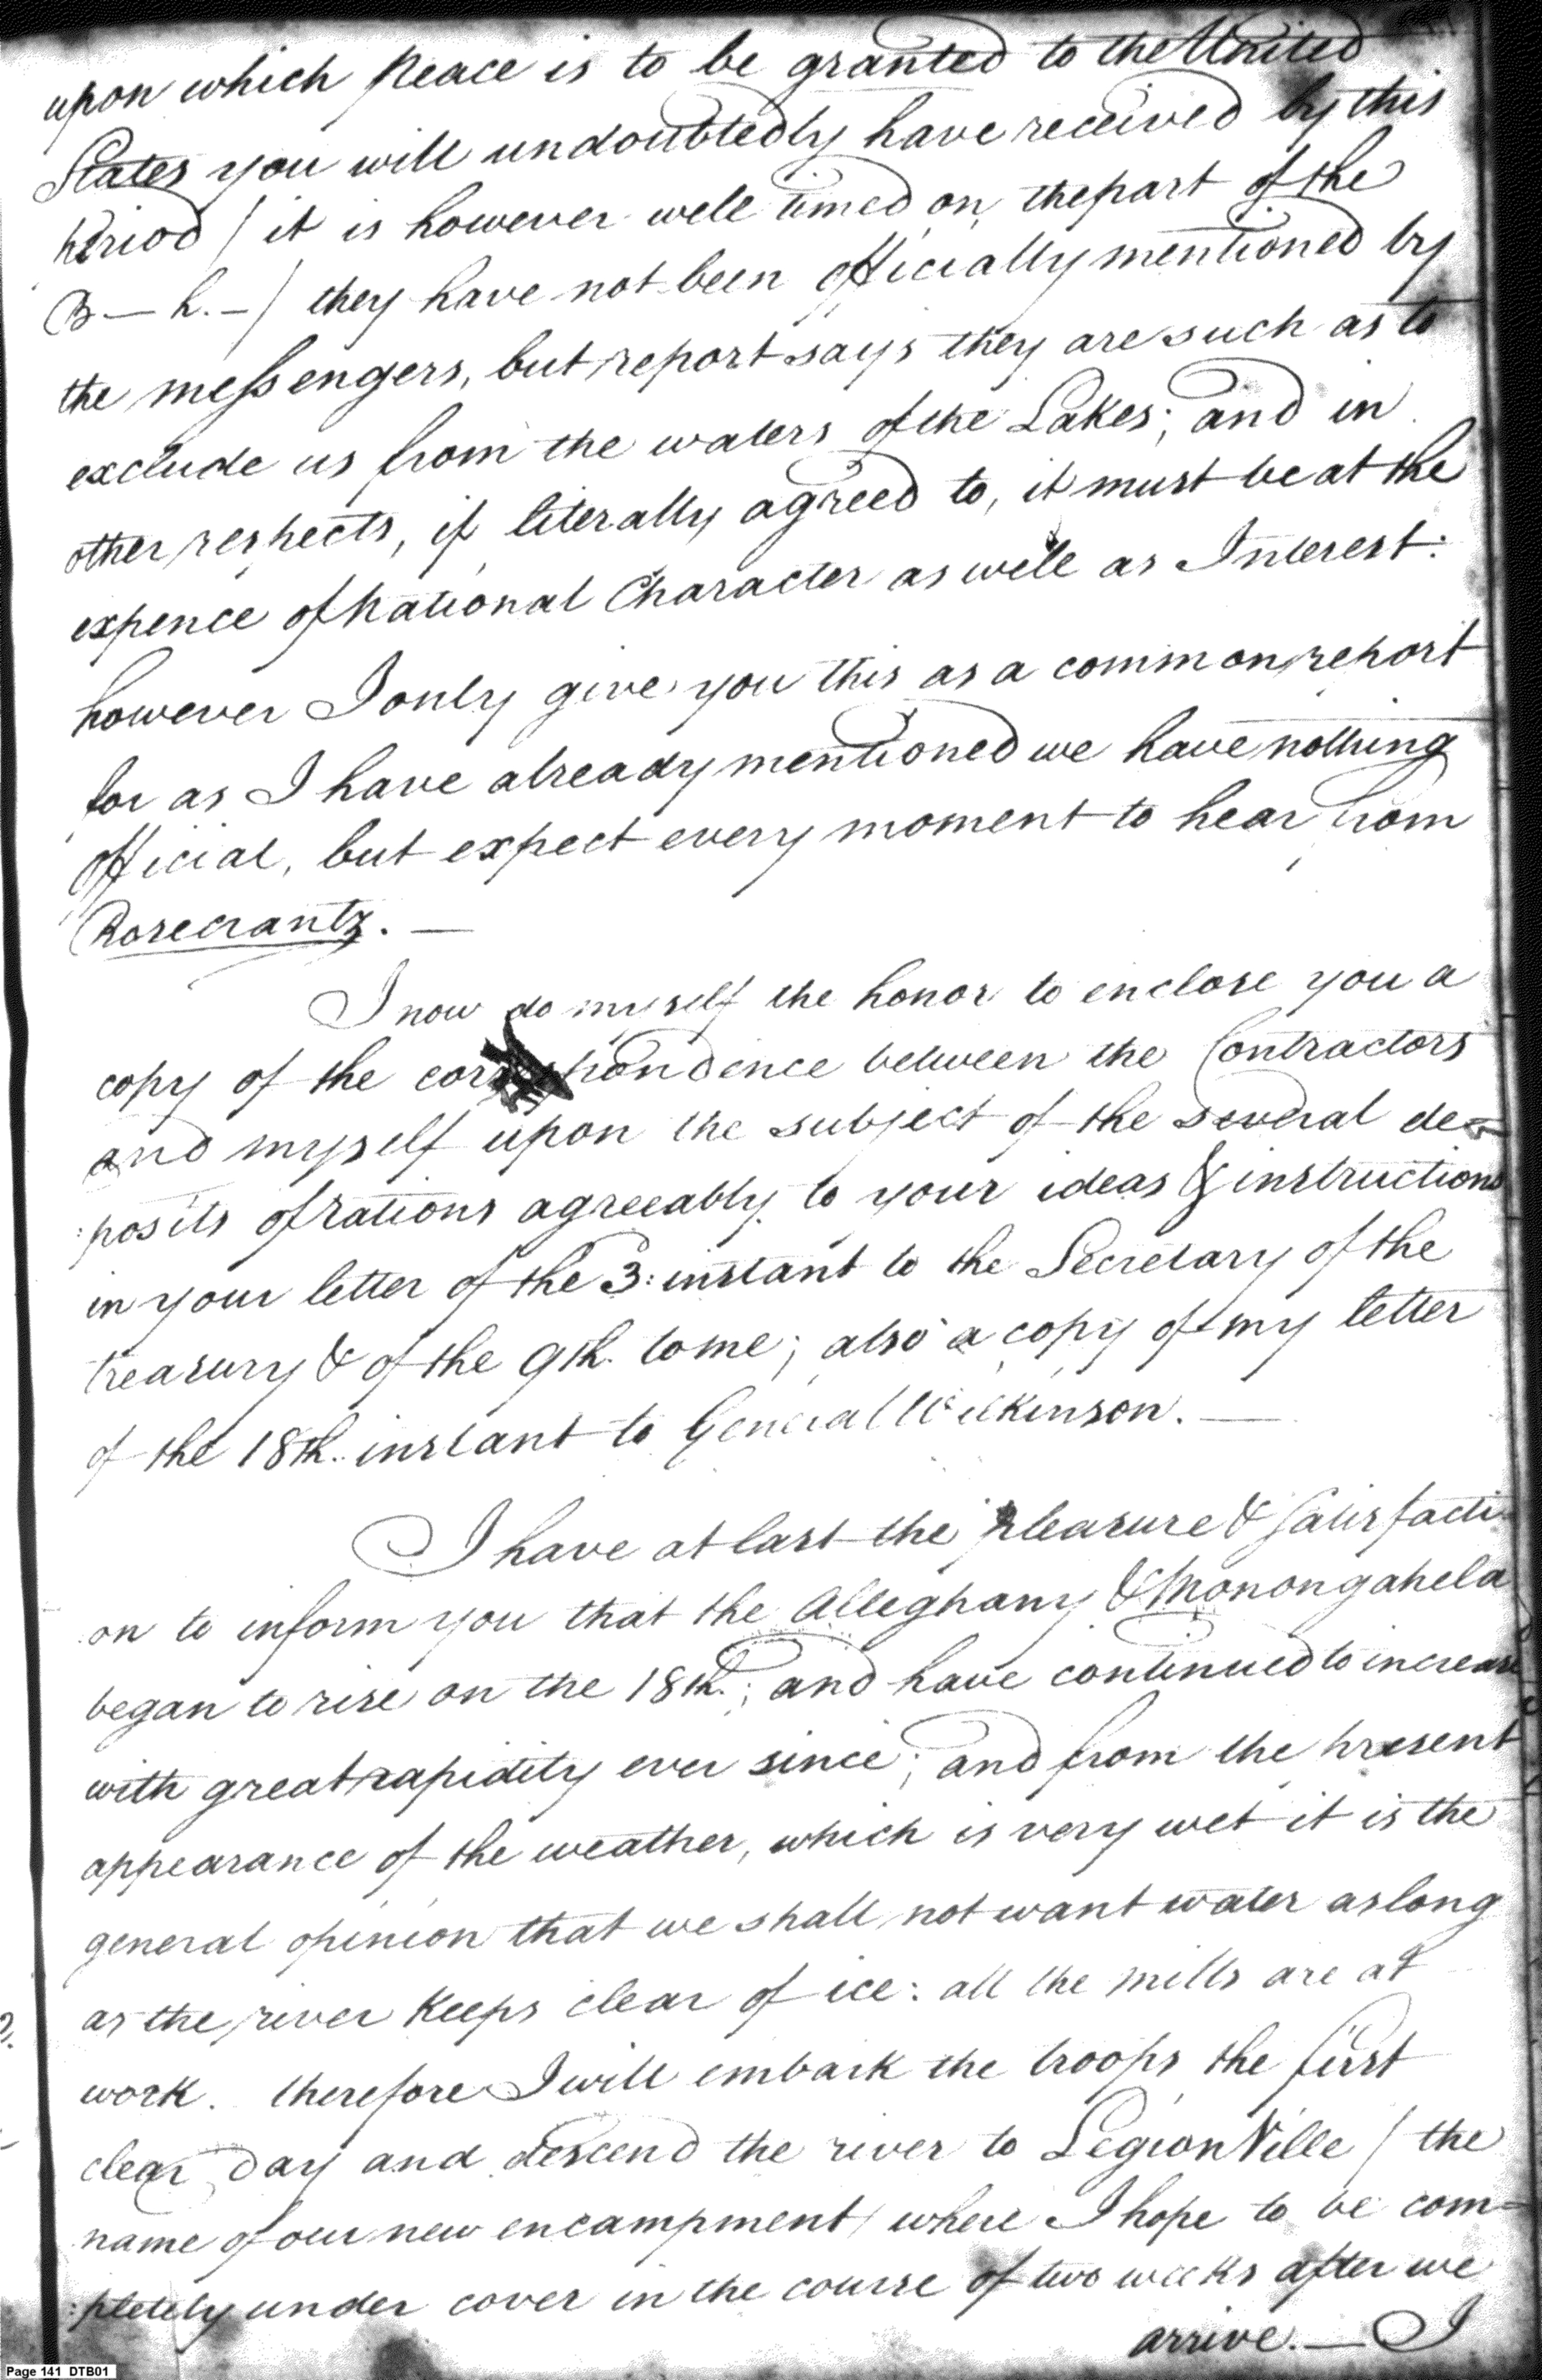 upon which Peace is to be granted to the United
States you will undoubtedly have received by this
period / it is however well timed on the part of the
B— h.—/ they have not been officially mentioned by
the messengers, but report says they are such as to
exclude us from the waters of the Lakes; and in
other respects, if literally agreed to, it must be at the
expence of National Character as well as Interest:
however I only give you this as a common report
for as I have already mentioned we have nothing
official, but expect every moment to hear from
Rosecrantz. —
I now do myself the honor to enclose you a
copy of the correspondence between the Contractors
and myself upon the subject of the several de=
:posits of rations agreeably to your ideas & instructions
in your letter of the 3: instant to the Secretary of the
treasury & of the 9th. to me; also a copy of my letter
of the 18th. instant to General Wilkinson. —
I have at last the pleasure & satisfacti-
on to inform you that the Alleghany & Monongahela
began to rise on the 18th.; and have continued to increase
with great rapidity ever since; and from the present
appearance of the weather, which is very wet it is the
general opinion that we shall not want water as long
as the river keeps clear of ice: all the mills are at
work. therefore I will embark the troops the first
clear day and descend the river to LegionVille / the
name of our new encampment / where I hope to be com=
:pletely under cover in the course of two weeks after we
arrive. — I
Page 141 DTB01